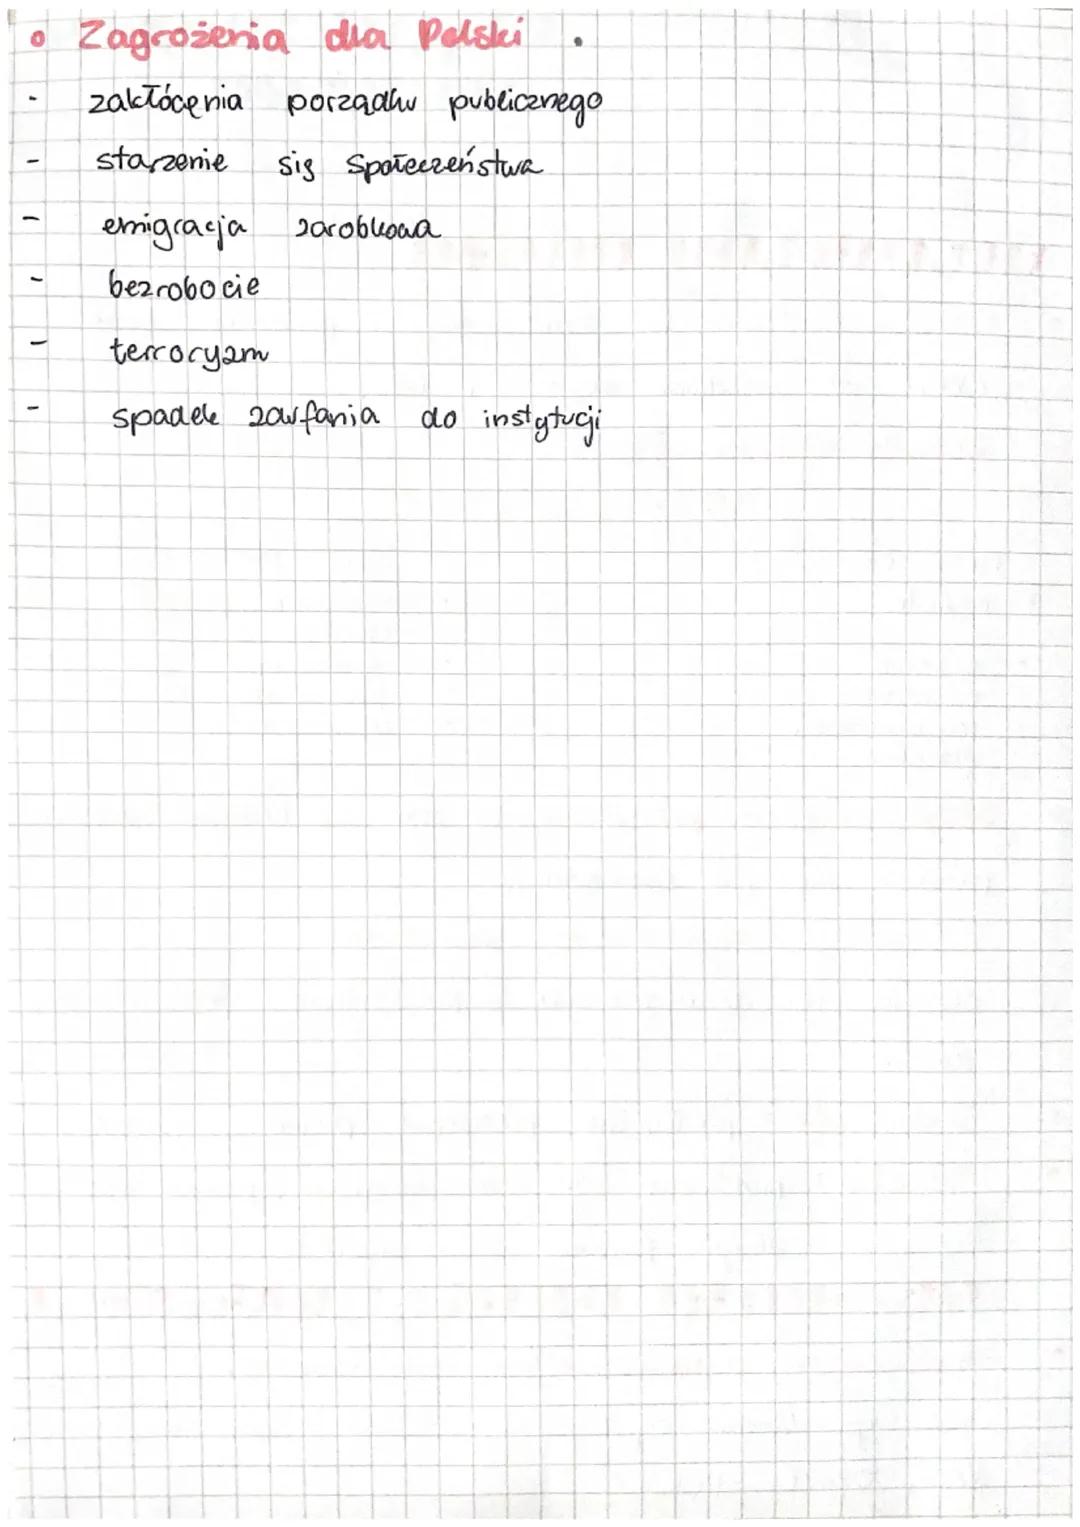 Zagrożenia dla Polski
- zakłócenia porządku publicznego
- starzenie się społeczeństwa
- emigracja zarobkowa
- bezrobocie
- terroryzm
- spadek zaufania do instytucji